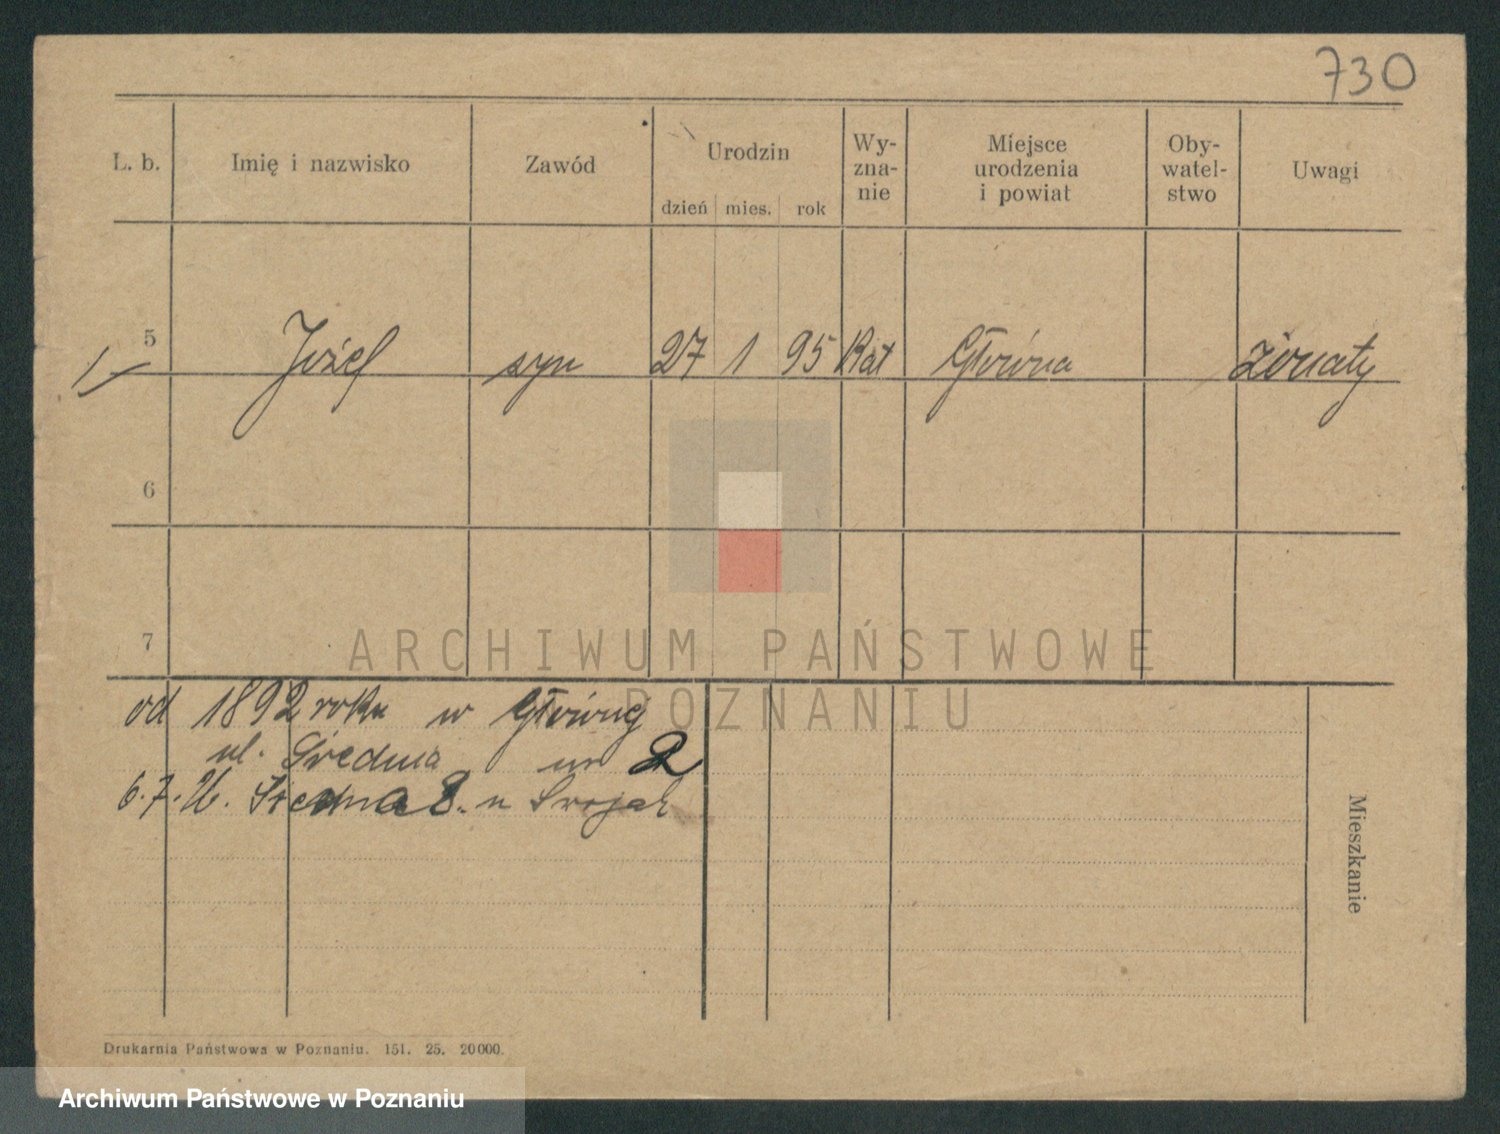 730
L. b. Imię i nazwisko Zawód Urodzin Wy-zna-nie Miejsce urodzenia i powiat Oby-watel-stwo Uwagi
dzień mies. rok
5 Józef syn 27 1 95 Kat Główna żonaty
1
6
7
od 1892 roku w Głównej
ul. Średnia nr 2
6.7. Średnia 8. u
Mieszkanie
Drukarnia Państwowa w Poznaniu. 151. 25. 20000.
ARCHIWUM PAŃSTWOWE
POZNANIU
Archiwum Państwowe w Poznaniu